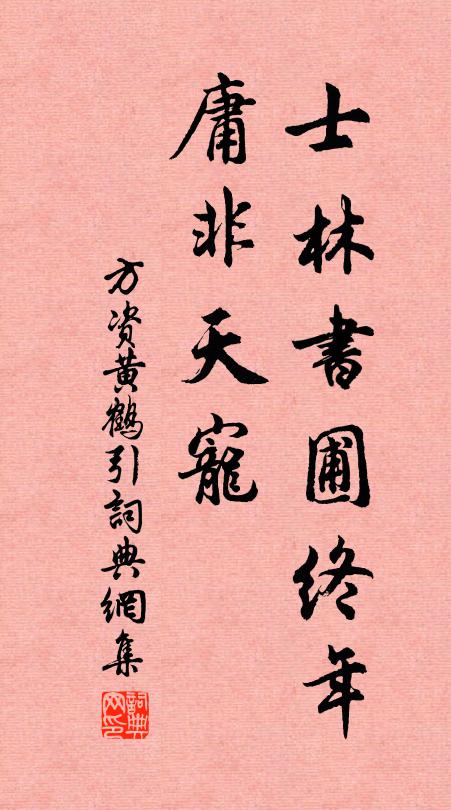 士林書圃終年
庸非天寵
方资黄鶴引詞典網集
詞典网印